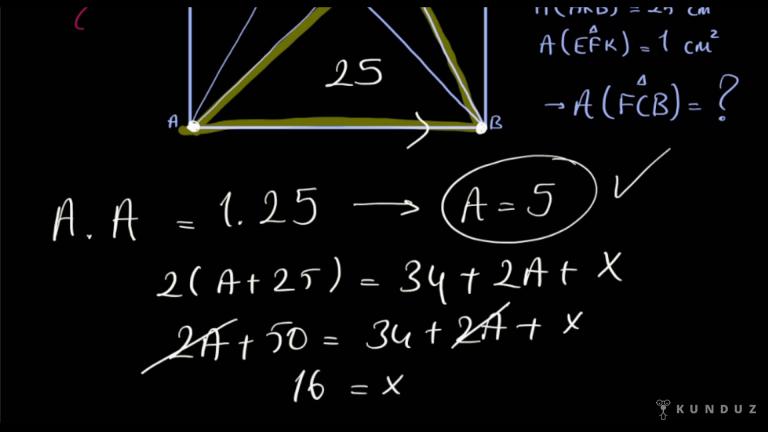 A(EFK) = 1 cm²
25
→ A(FCB) = ?
A
B
A . A = 1.25 → A = 5 ✓
2(A+25) = 34 + 2A + X
2A + 50 = 34 + 2A + x
16 = x
KUNDUZ